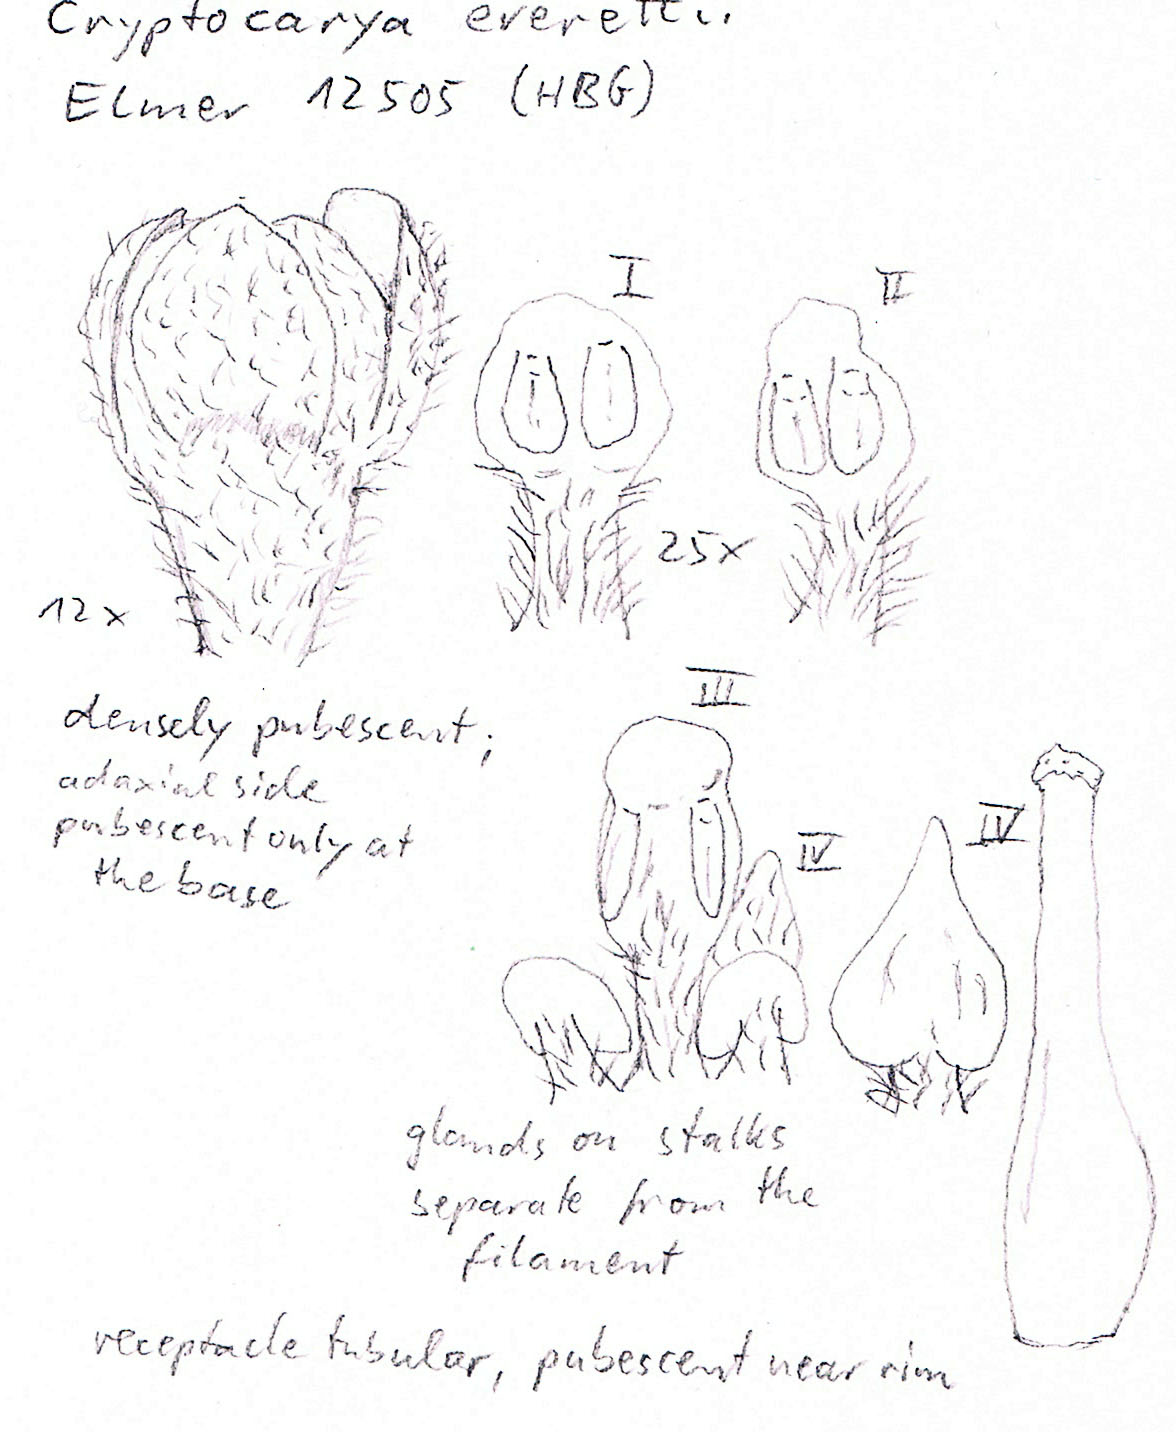 Cryptocarya everettii
Elmer 12505 (HBG)
I
II
25x
12x
III
densely pubescent;
adaxial side
pubescent only at
the base
IV
IV
glands on stalks
separate from the
filament
receptacle tubular, pubescent near rim